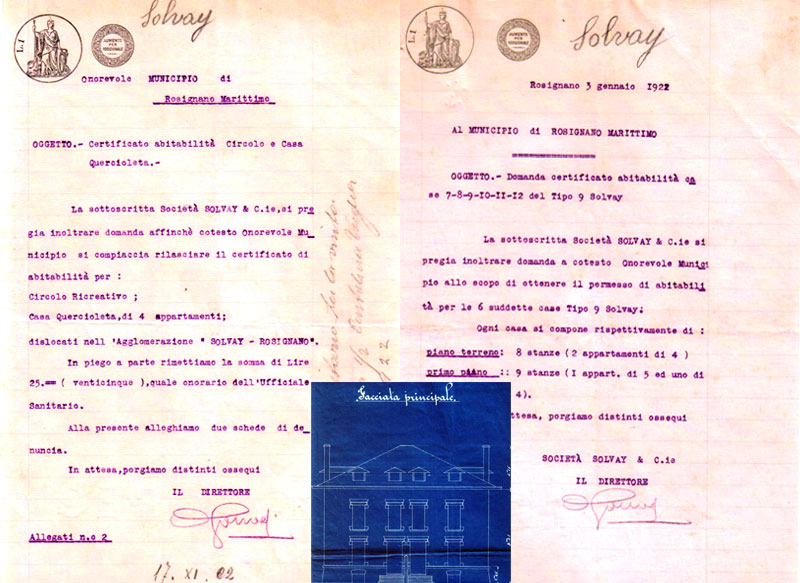 L.I
AUMENTO
PER
Solvay
Onorevole MUNICIPIO di
Rosignano Marittimo
OGGETTO.- Certificato abitabilità Circolo e Casa
Quercioleta.-
La sottoscritta Società SOLVAY & C.ie,si pre
gia inoltrare domanda affinchè cotesto Onorevole Mu
nicipio si compiaccia rilasciare il certificato di
abitabilità per :
Circolo Ricreativo ;
Casa Quercioleta,di 4 appartamenti;
dislocati nell 'Agglomerazione " SOLVAY - ROSIGNANO".
In piego a parte rimettiamo la somma di Lire
25.== ( venticinque ),quale onorario dell'Ufficiale
Sanitario.
Alla presente alleghiamo due schede di de
nuncia.
In attesa,porgiamo distinti ossequi
IL DIRETTORE
Allegati n.o 2
17. XI. 02
Facciata principale.
L.I
AUMENTO
PER
Solvay
Rosignano 3 gennaio 1922
Al MUNICIPIO di ROSIGNANO MARITTIMO
OGGETTO.- Domanda certificato abitabilità ca
se 7-8-9-IO-II-I2 del Tipo 9 Solvay
La sottoscritta Società SOLVAY & C.ie si
pregia inoltrare domanda a cotesto Onorevole Munici
pio allo scopo di ottenere il permesso di abitabili
tà per le 6 suddette case Tipo 9 Solvay;
Ogni casa si compone rispettivamente di :
piano terreno: 8 stanze (2 appartamenti di 4 )
primo piano :: 9 stanze (I appart. di 5 ed uno di
4).
attesa, porgiamo distinti ossequi
SOCIETÀ SOLVAY & C.ie
IL DIRETTORE